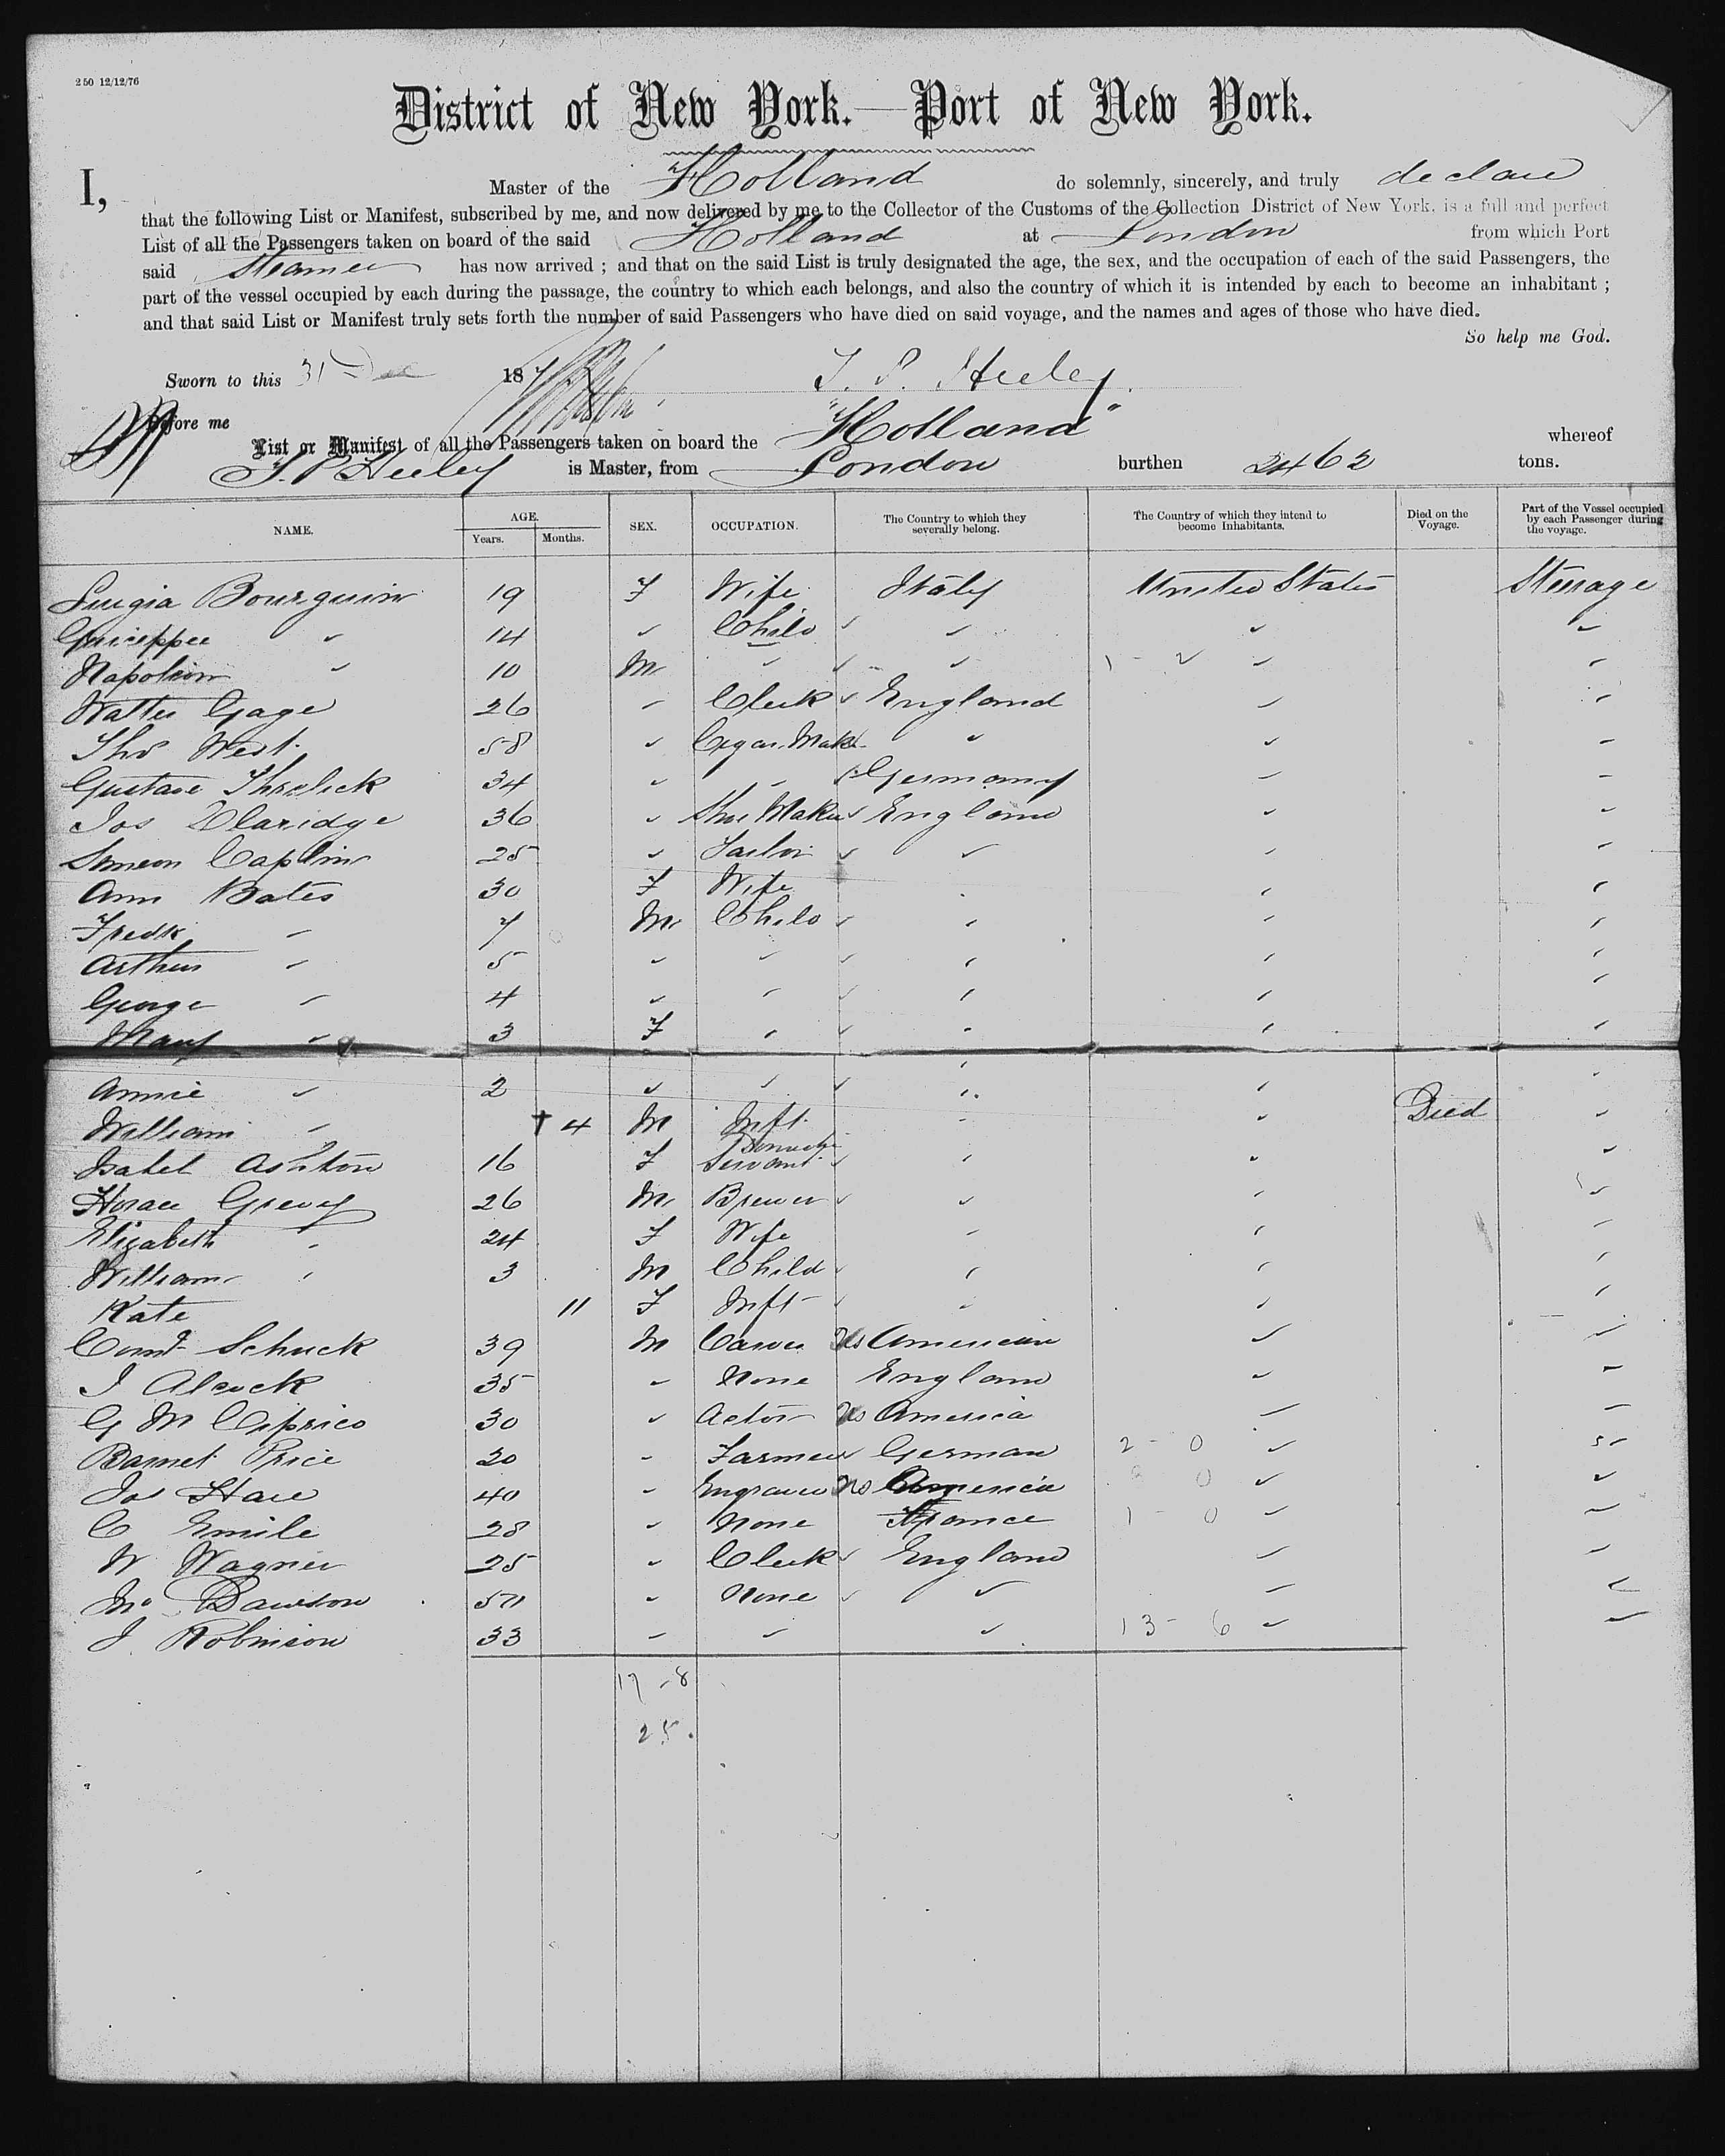 250 12/12/76
District of New York.—Port of New York.
I, Master of the Holland do solemnly, sincerely, and truly declare
that the following List or Manifest, subscribed by me, and now delivered by me to the Collector of the Customs of the Collection District of New York, is a full and perfect
List of all the Passengers taken on board of the said Holland at London from which Port
said Steamer has now arrived ; and that on the said List is truly designated the age, the sex, and the occupation of each of the said Passengers, the
part of the vessel occupied by each during the passage, the country to which each belongs, and also the country of which it is intended by each to become an inhabitant ;
and that said List or Manifest truly sets forth the number of said Passengers who have died on said voyage, and the names and ages of those who have died.
So help me God.
Sworn to this 31 Dec 187
Before me
List or Manifest of all the Passengers taken on board the "Holland" whereof
is Master, from London burthen 2462 tons.
NAME. AGE. SEX. OCCUPATION. The Country to which they severally belong. The Country of which they intend to become Inhabitants. Died on the Voyage. Part of the Vessel occupied by each Passenger during the voyage.
Years. Months.
Bourguin 19 F Wife Italy United States Steerage
14 ✓ Child ✓ ✓ ✓
Napoleon ✓ 10 M ✓ ✓ 1 - 2 ✓
Walter Gage 26 Clerk England
Thos West 58 ✓ Cigar Maker " ✓
Gustave 34 ✓ Germany
Jos Claridge 36 ✓ Shoe Maker England
Simeon Caplin 25 ✓ Tailor ✓
Ann Bates 30 F Wife
Fredk " 7 M Child
Arthur " 5 ✓
George " 4 ✓
Mary " 3 F
Annie ✓ 2 ✓
William " † 4 M Inft Died
Isabel Ashton 16 F Domestic Servant
Horace 26 M Brewer ✓
Elizabeth " 24 F Wife
William " 3 M Child
Kate 11 F Inft
Schuck 39 M Carver US American ✓
J Alcock 35 None England ✓
G M 30 ✓ Actor US America
Barnet Price 20 Farmer German 2 - 0 ✓
Jos Hare 40 Engraver US America 0 ✓
C Emile 28 ✓ None France 1 - 0 ✓
W Wagner 25 Clerk England
Jno Dawson 50 None ✓
J. Robinson 33 ✓ ✓ 13 - 6 ✓
17 - 8
25.